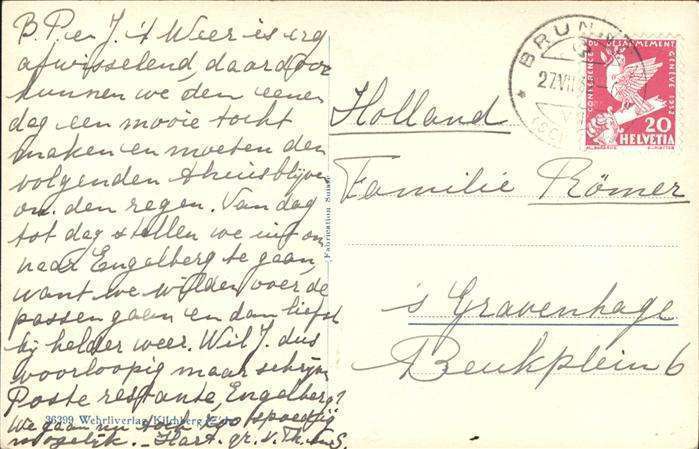 B. P. en J. 't Weer is erg
afwisselend, daardoor
kunnen we den eenen
dag een mooie tocht
maken en moeten den
volgenden thuisblijven
om den regen. Van dag
tot dag stellen we uit om
naar Engelberg te gaan,
want we wilden over de
passen gaan en dan liefst
bij helder weer. Wil J. dus
voorloopig maar schrijven
Poste restante Engelberg?
We gaan nu toch zoo spoedig
mogelijk. - Hart. gr. v. Th. en S.
36399 Wehrliverlag, Kilchberg
Fabrication Suisse
BRUNNEN
27.VII.3
CONFERENCE DU DESARMEMENT GENEVE 1932
20
HELVETIA
Holland
Familie Römer
's Gravenhage
Beukplein 6